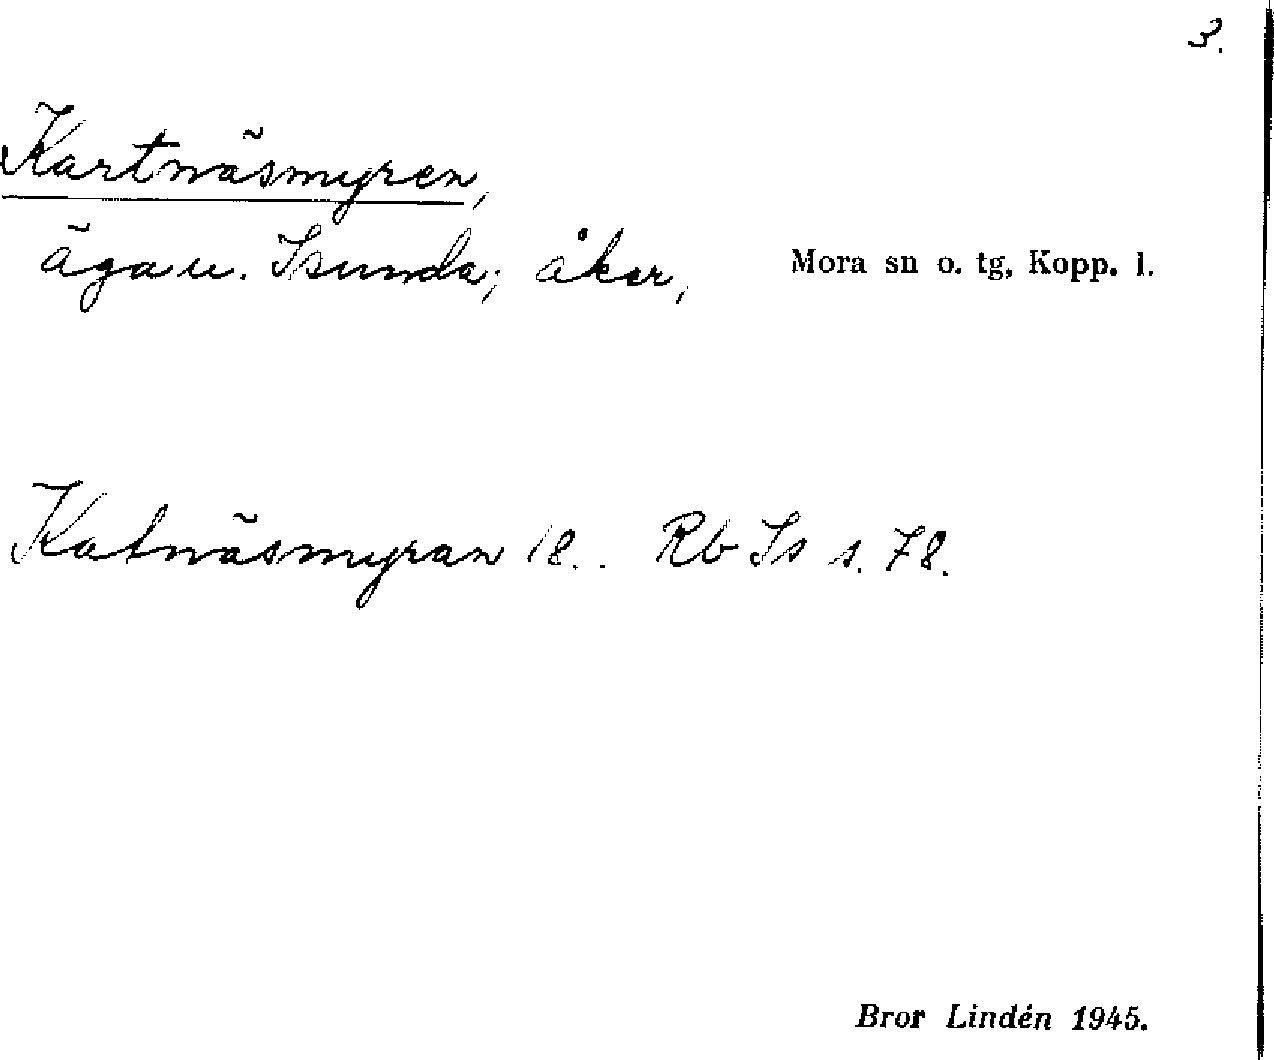 3.
Kartnäsmyren,
äga u. Isunda; åker, Mora sn o. tg, Kopp. l.
Katnäsmyran 18.. Rb Is s. 78.
Bror Lindén 1945.